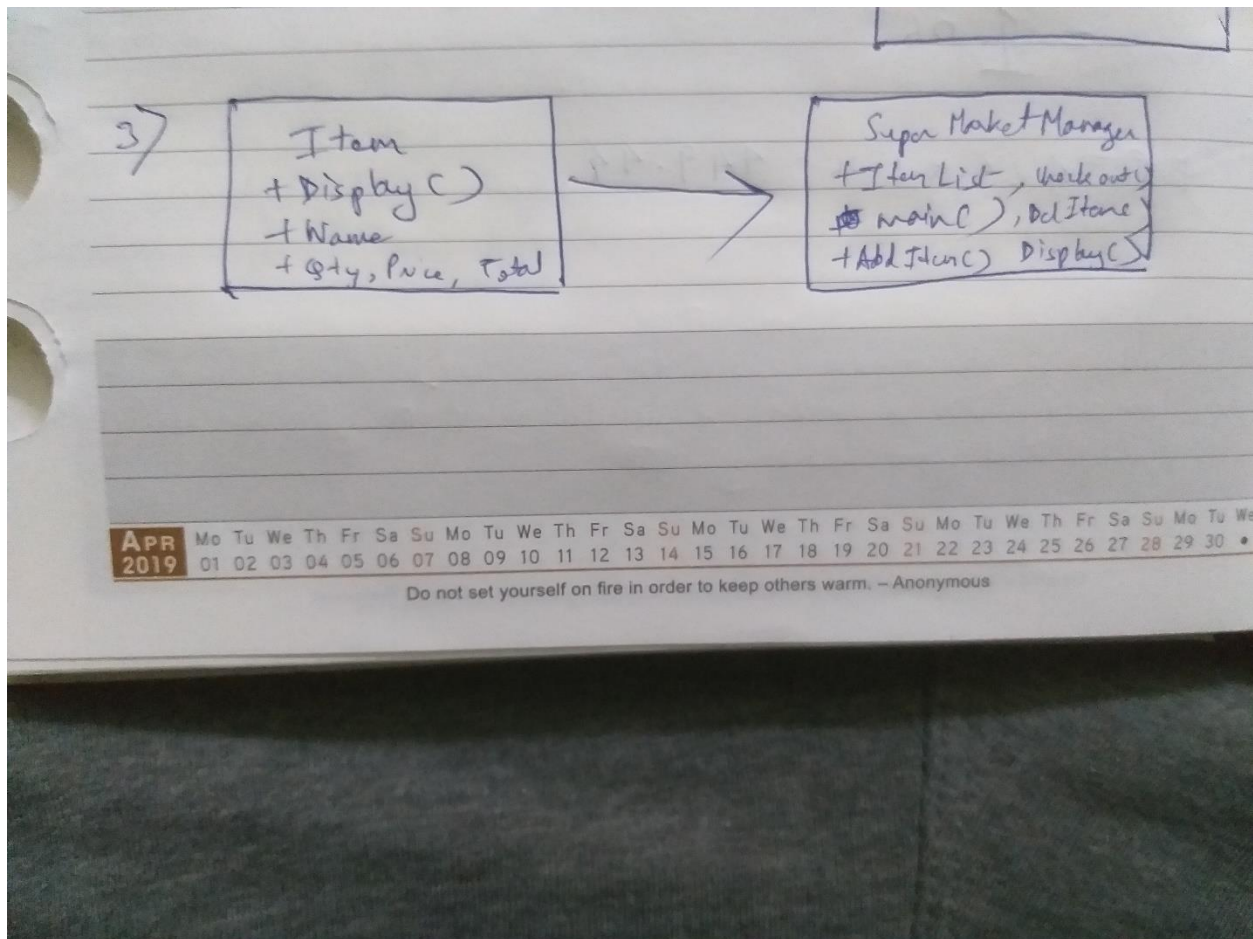 3)
Item
+ Display()
+ Name
+ Qty, Price, Total
Super Market Manager
+ Item List, checkout()
main(), Del Item()
+ Add Item() Display()
APR Mo Tu We Th Fr Sa Su Mo Tu We Th Fr Sa Su Mo Tu We Th Fr Sa Su Mo Tu We Th Fr Sa Su Mo Tu We
2019 01 02 03 04 05 06 07 08 09 10 11 12 13 14 15 16 17 18 19 20 21 22 23 24 25 26 27 28 29 30 •
Do not set yourself on fire in order to keep others warm. – Anonymous